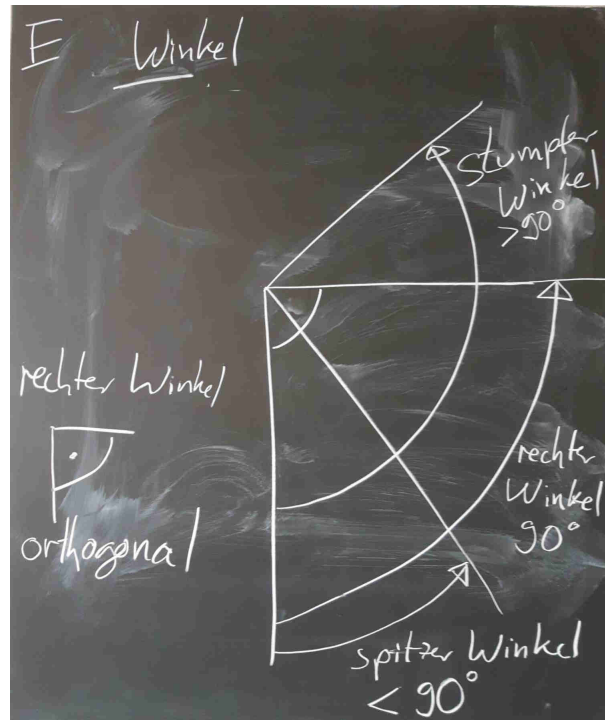 E Winkel
stumpfer
Winkel
>90°
rechter Winkel
orthogonal
rechter
Winkel
90°
spitzer Winkel
< 90°